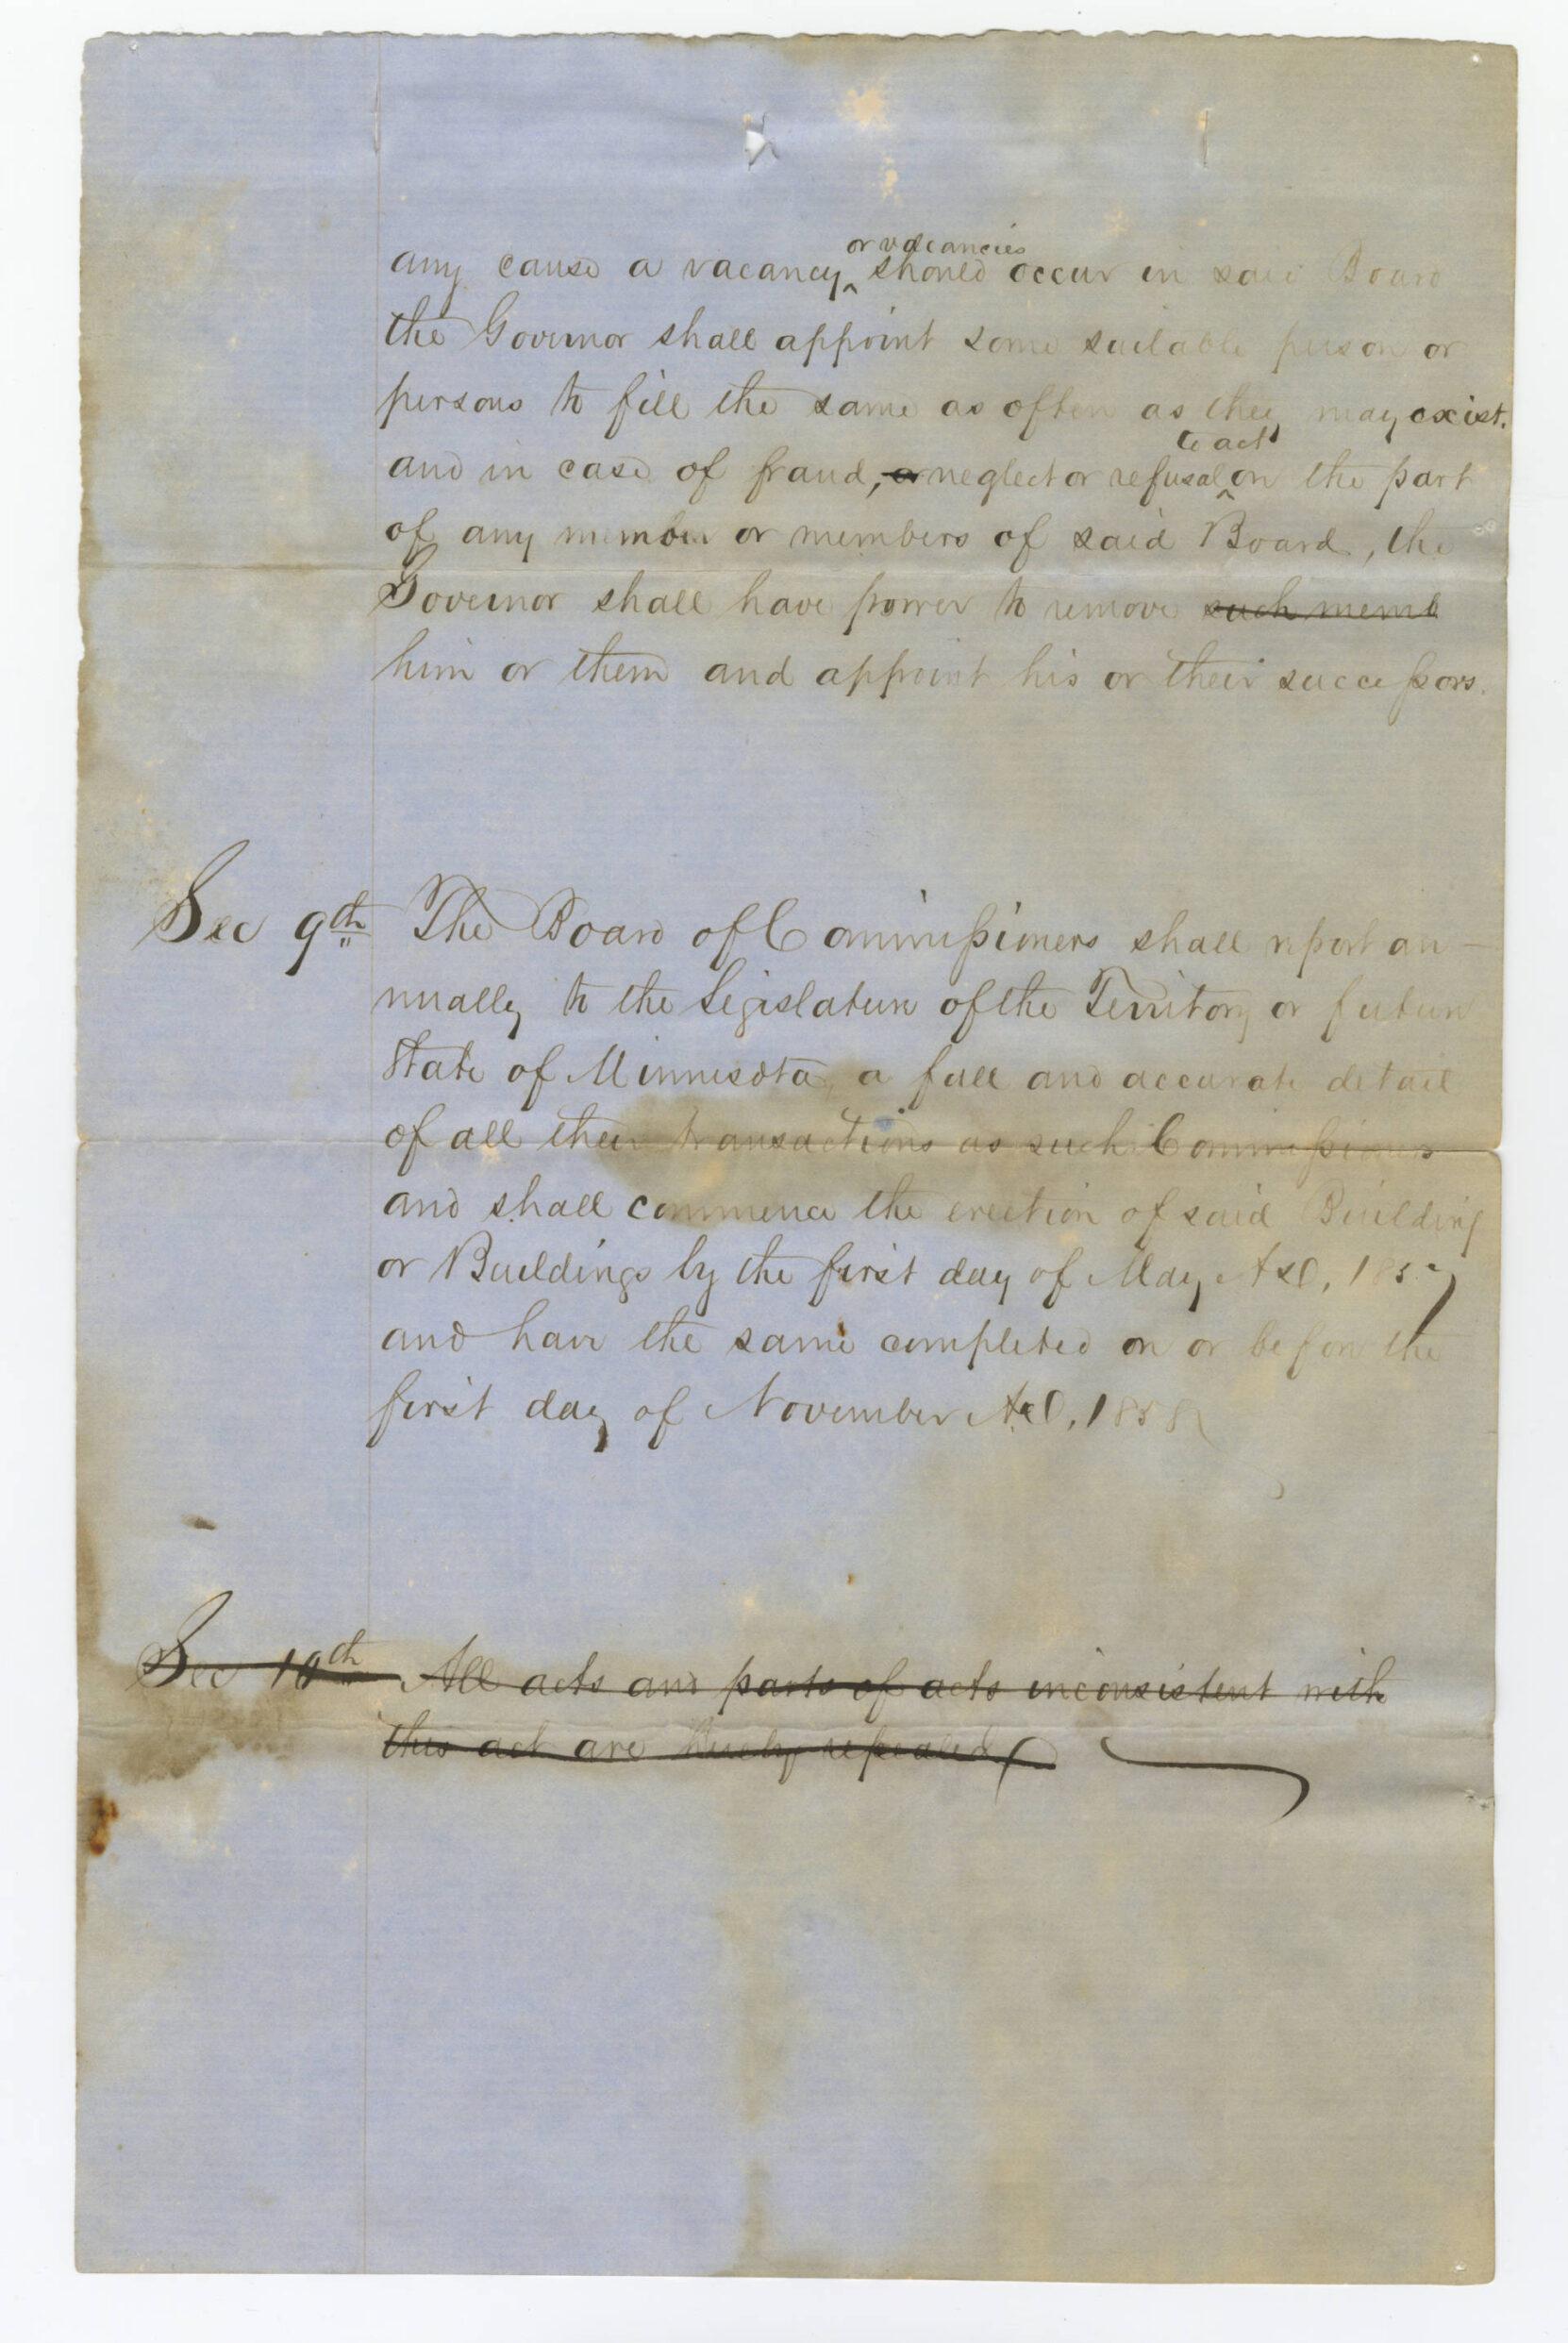 any cause a vacancy ^or vacancies should occur in said Board
the Governor shall appoint some suitable person or
persons to fill the same as often as they may exist.
and in case of fraud, ~~or~~ neglect or refusal ^to act on the part
of any member or members of said Board, the
Governor shall have power to remove ~~such memb~~
him or them and appoint his or their successors.
Sec 9th The Board of Commissioners shall report an-
nually to the Legislature of the Territory or future
State of Minnesota, a full and accurate detail
of all their transactions as such Commissioners
and shall commence the erection of said Building
or Buildings by the first day of May A.D. 1857
and have the same completed on or before the
first day of November A.D. 1858
~~Sec 10th All acts and parts of acts inconsistent with~~
~~this act are hereby repealed~~